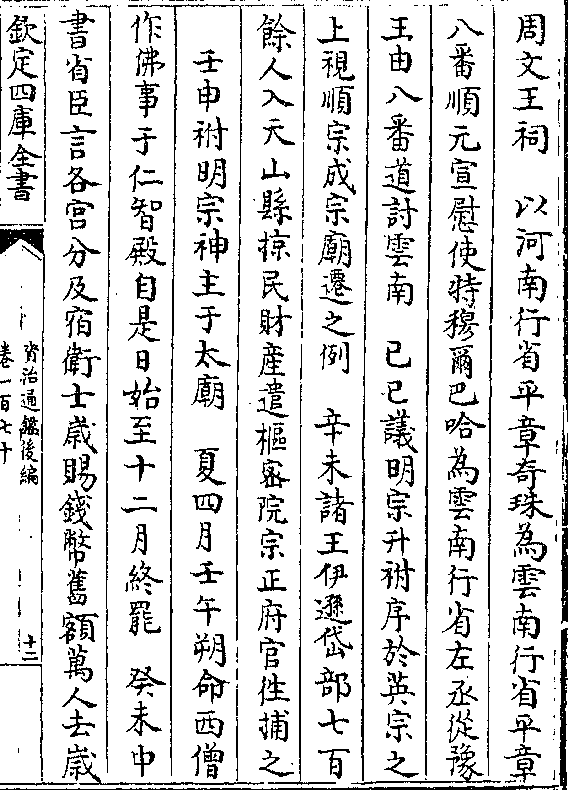 周文王祠　以河南行省平章奇珠為雲南行省平章
八番順元宣慰使特穆爾巴哈為雲南行省左丞從豫
王由八番道討雲南　己巳議明宗升祔序於英宗之
上視順宗成宗廟遷之例　辛未諸王伊遜岱部七百
餘人入天山縣掠民財產遣樞密院宗正府官徃捕之
壬申祔明宗神主于太廟　夏四月壬午朔命西僧
作佛事于仁智殿自是日始至十二月終罷　癸未中
書省臣言各宮分及宿衛士歲賜錢幣舊額萬人去歲
欽定四庫全書
資治通鑑後編
卷一百七十
十二